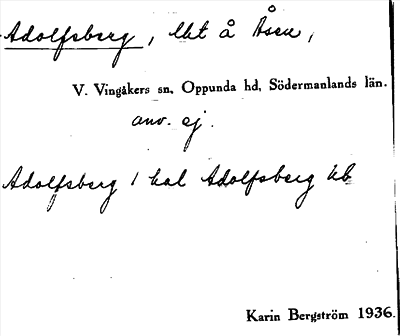 Adolfsberg, lht å Åsen,
V. Vingåkers sn, Oppunda hd, Södermanlands län.
anv. ej.
Adolfsberg 1 hal Adolfsberg kb
Karin Bergström 1936.